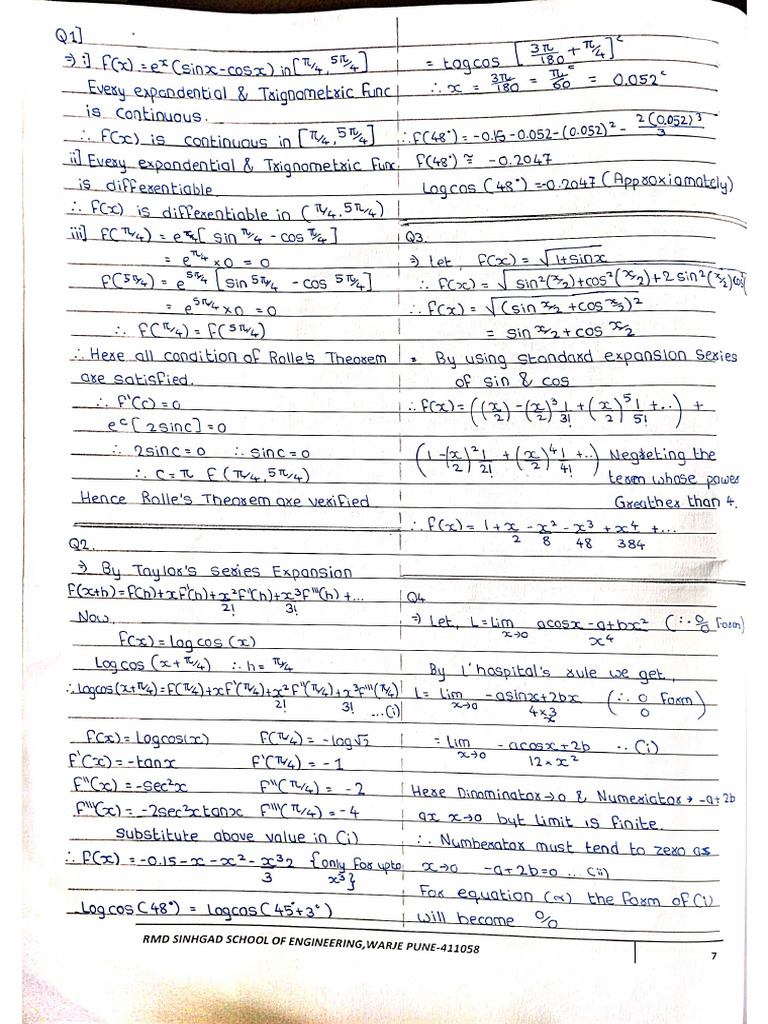 Q1]
⇒ i] f(x) = eˣ (sinx-cosx) in [π/4, 5π/4]
Every expondential & Trignometric Func
is continuous.
∴ f(x) is continuous in [π/4, 5π/4]
ii] Every expondential & Trignometric Func.
is differentiable
∴ f(x) is differentiable in (π/4, 5π/4)
iii] f(π/4) = e^π/4 [sin π/4 - cos π/4]
= e^π/4 × 0 = 0
f(5π/4) = e^5π/4 [sin 5π/4 - cos 5π/4]
= e^5π/4 × 0 = 0
∴ f(π/4) = f(5π/4)
∴ Here all condition of Rolle's Theorem
are satisfied.
∴ f'(c) = 0
e^c [2sinc] = 0
∴ 2sinc = 0 ∴ sinc = 0
∴ c = π f (π/4, 5π/4)
Hence Rolle's Theorem are verified
Q2.
⇒ By Taylor's series Expansion
f(x+h) = f(h) + xf'(h) + x²f''(h)/2! + x³f'''(h)/3! + ...
Now,
f(x) = log cos (x)
Log cos (x + π/4) ∴ h = π/4
∴ logcos(x+π/4) = f(π/4) + xf'(π/4) + x²/2! f''(π/4) + x³/3! f'''(π/4) ...(i)
f(x) = logcos(x) f(π/4) = -log√2
f'(x) = -tanx f'(π/4) = -1
f''(x) = -sec²x f''(π/4) = -2
f'''(x) = -2sec²x tanx f'''(π/4) = -4
Substitute above value in (i)
∴ f(x) = -0.15 - x - x² - x³2/3 {only for upto x³}
Logcos (48°) = logcos (45°+3°)
= logcos [3π/180 + π/4]ᶜ
∴ x = 3π/180 = π/60ᶜ = 0.052ᶜ
∴ f(48°) = -0.15 - 0.052 - (0.052)² - 2(0.052)³/3
f(48°) ≅ -0.2047
Logcos (48°) = -0.2047 (Approxiamately)
Q3.
⇒ let, f(x) = √1+sinx
∴ f(x) = √sin²(x/2) + cos²(x/2) + 2 sin²(x/2) cos
∴ f(x) = √(sin x/2 + cos x/2)²
= sin x/2 + cos x/2
• By using standard expansion series
of sin & cos
∴ f(x) = ((x/2) - (x/2)³ 1/3! + (x/2)⁵ 1/5! + ...) +
(1 - (x/2)² 1/2! + (x/2)⁴ 1/4! + ..) Neglreting the
term whose power
Greather than 4.
∴ f(x) = 1 + x/2 - x²/8 - x³/48 + x⁴/384 + ...
Q4
⇒ Let, L = Lim x→0 acosx - a + bx² / x⁴ (∵ 0/0 form)
By l'hospital's rule we get,
L = Lim x→0 -asinx + 2bx / 4x3 (∴ 0/0 form)
= Lim x→0 -acosx + 2b / 12 × x² .. (i)
Here Dinominator→0 & Numeriator→ -a+2b
ax x→0 but Limit is finite.
∴ Numberator must tend to zero as
x→0 -a+2b=0 .. (ii)
For equation (∝) the form of (i)
will become 0/0
RMD SINHGAD SCHOOL OF ENGINEERING,WARJE PUNE-411058
7